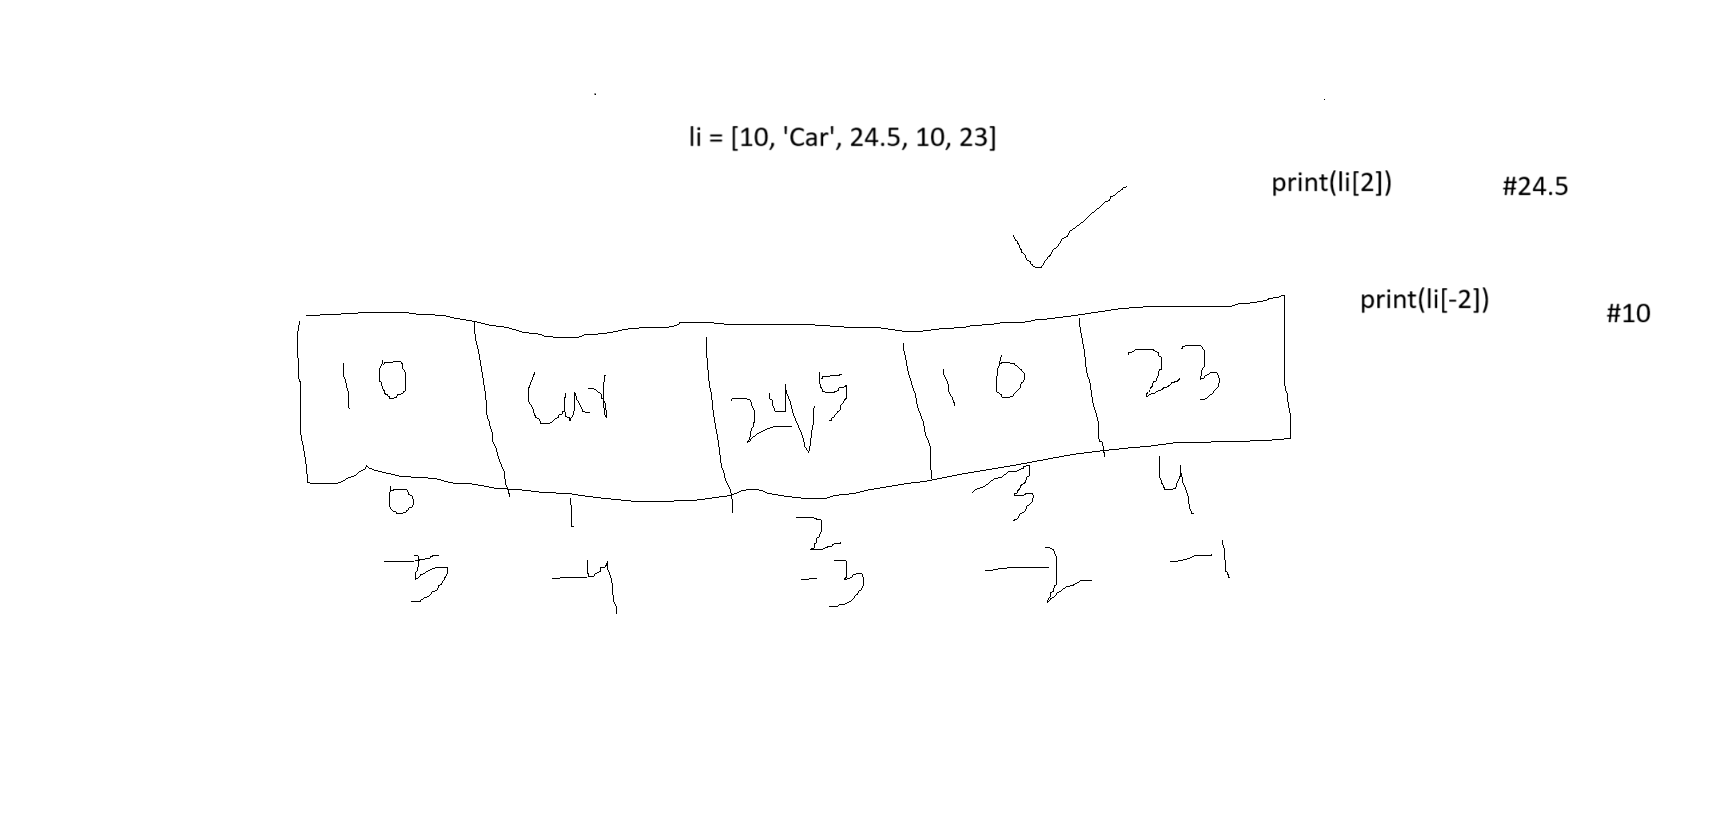 li = [10, 'Car', 24.5, 10, 23]
print(li[2]) #24.5
print(li[-2]) #10
10 Car 24.5 10 23
0 1 2 3 4
-5 -4 -3 -2 -1